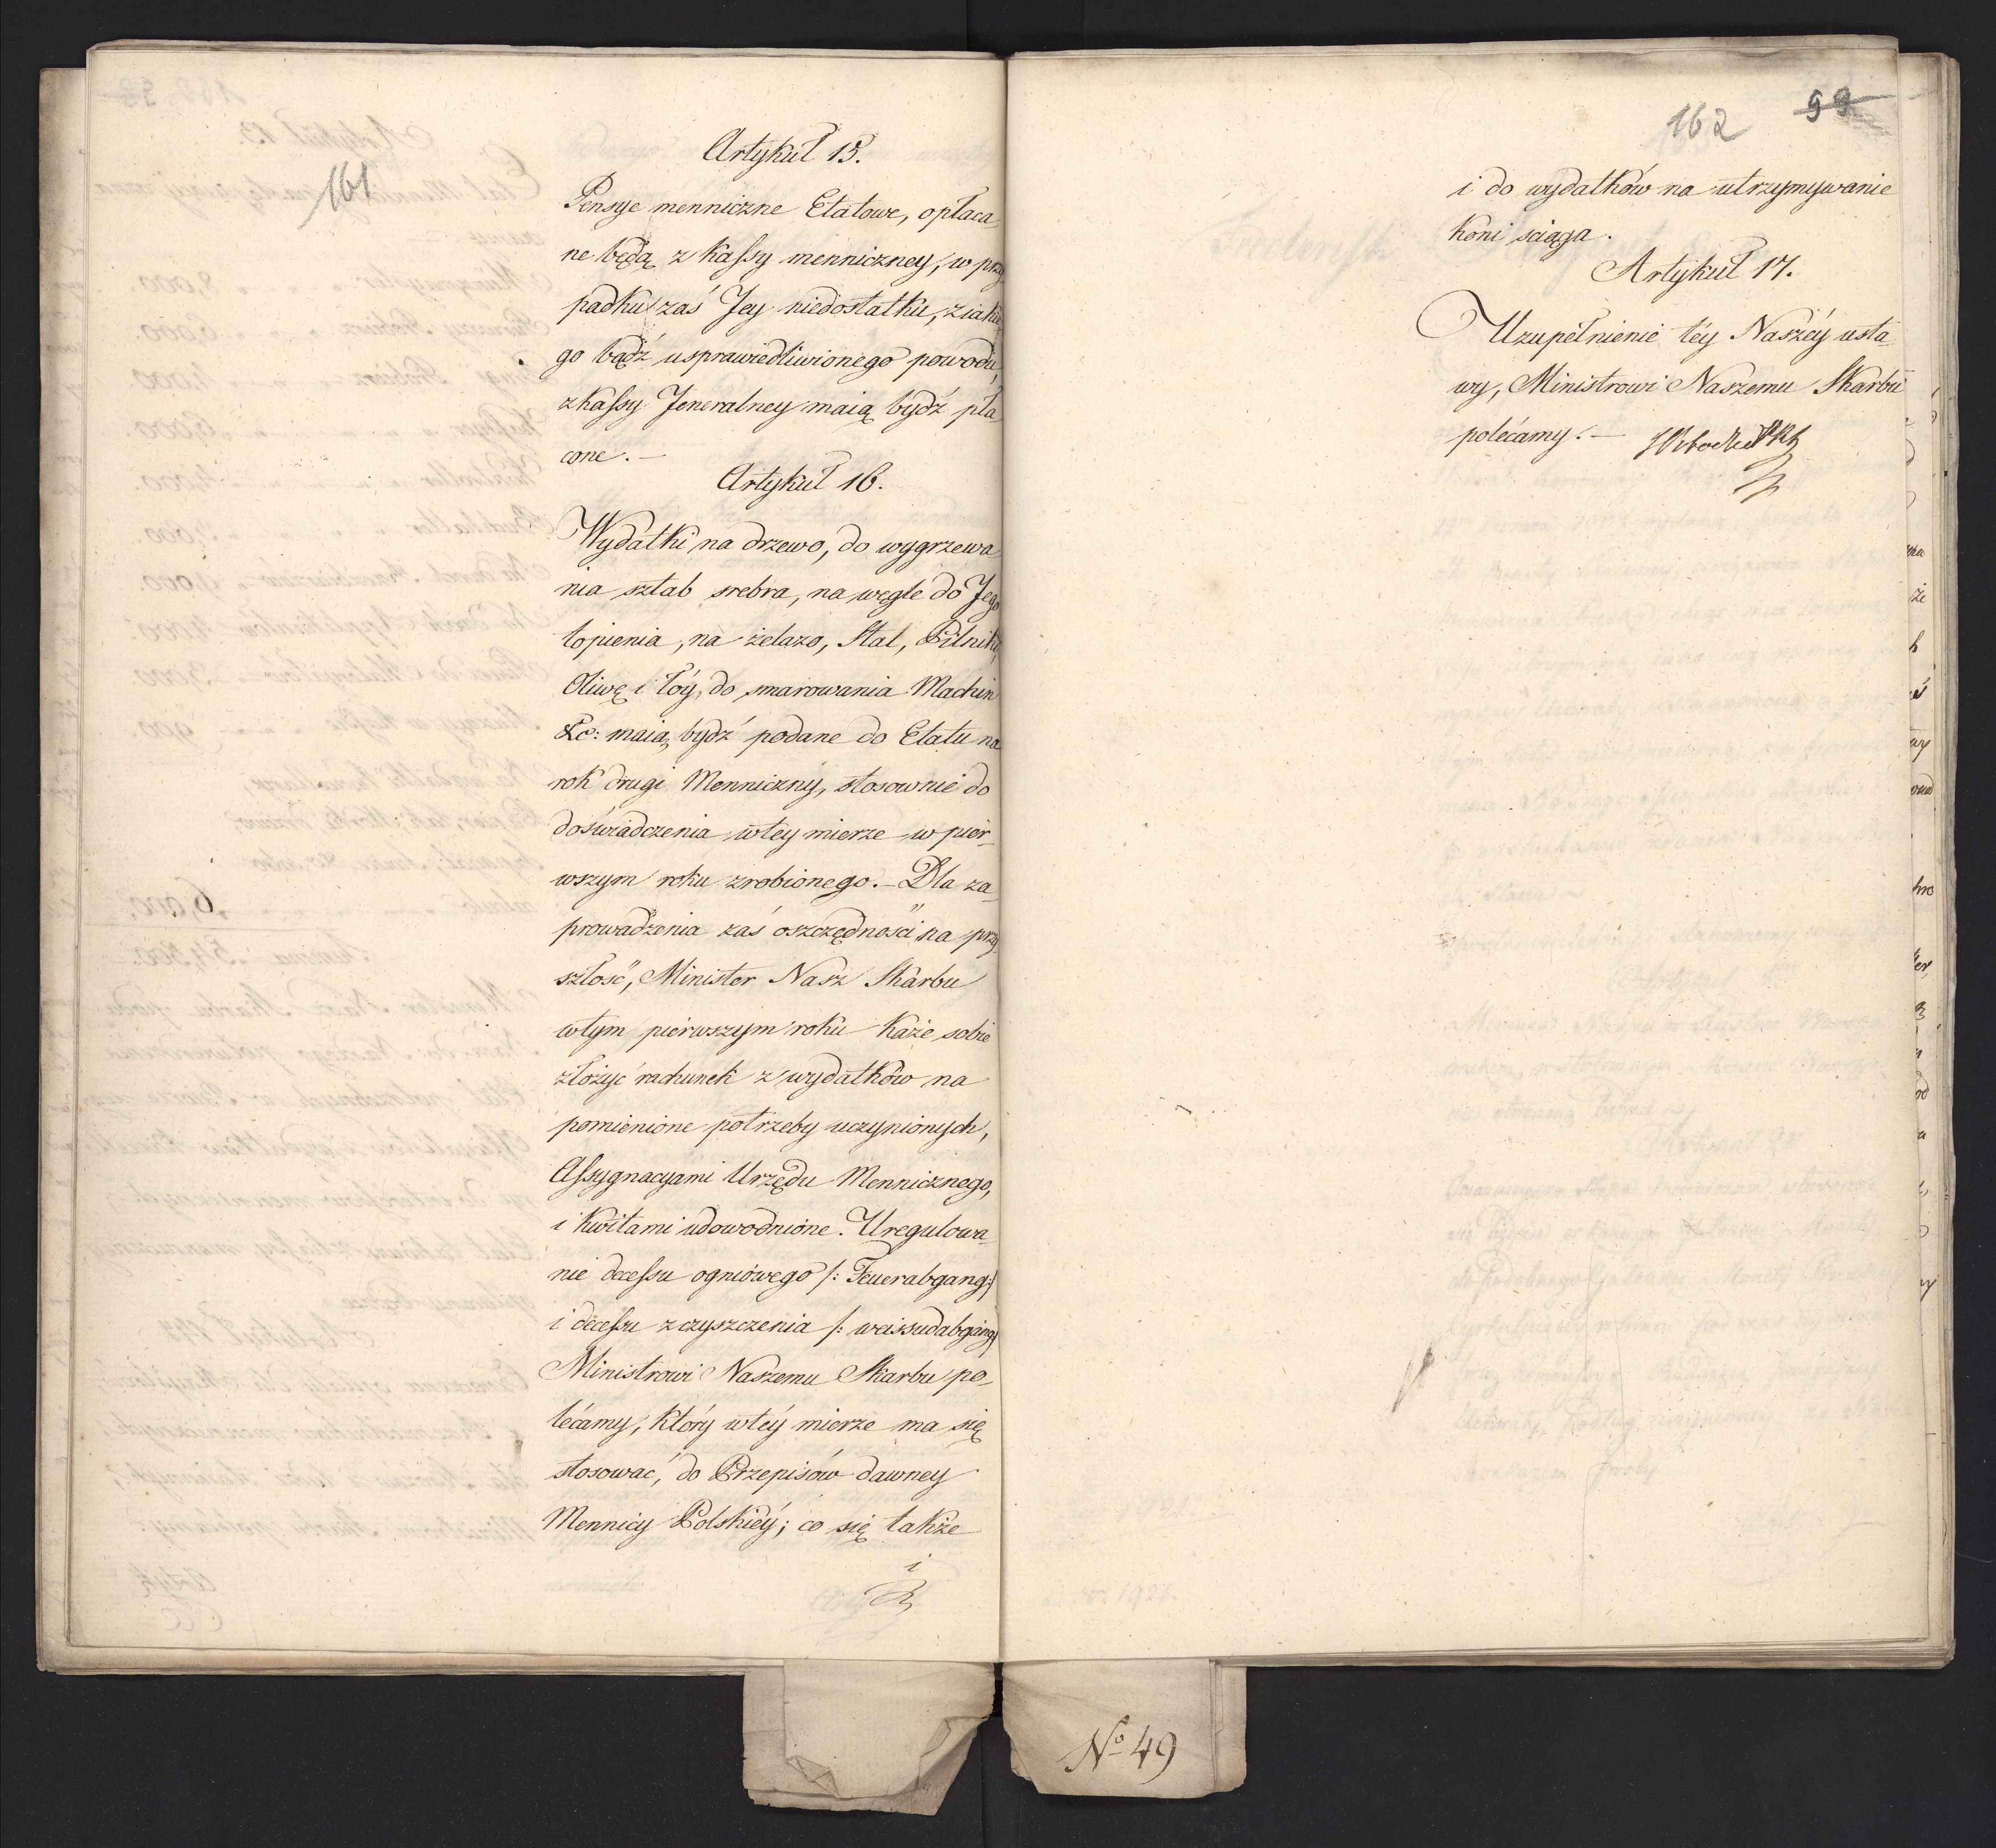 161
Artykuł 15.
Pensye mennicżne Etatowe, opłaca
ne będą z kassy mennicżney, w przy
padku zaś Jey niedostatku, z iakie
go bądź usprawiedliwionego powodu,
z kassy Jeneralney maią bydź pła
cone. —
Artykuł 16.
Wydatki na drzewo, do wygrzewa
nia sztab srebra, na węgle do Jego
topienia, na żelazo, Stal, Pilniki,
Oliwę i łóy, do smarowania Machin
&c: maią bydź podane do Etatu na
rok drugi Mennicżny, stosownie do
doświadczenia w tey mierze w pier_
wszym roku zrobionego. — Dla za_
prowadzenia zaś oszczędności na przy
szłość, Minister Nasz Skarbu
w tym pierwszym roku każe sobie
złożyć rachunek z wydatków na
pomienione potrzeby uczynionych,
Assygnacyami Urzędu Mennicznego,
i kwitami udowodnione. Uregulowa_
nie decessu ogniowego /: Feuerabgang:/
i decessu z czyszczenia /: weissudabgang:/
Ministrowi Naszemu Skarbu po_
lécamy, który w téy mierze ma się
stosować, do Przepisów dawney
Mennicy Polskiéy; co się także
i
162 99
i do wydatków na utrzymywanie
koni sciąga.
Artykuł 17.
Uzupełnienie téy Naszéy usta_
wy, Ministrowi Naszemu Skarbu
polécamy. —
No 49